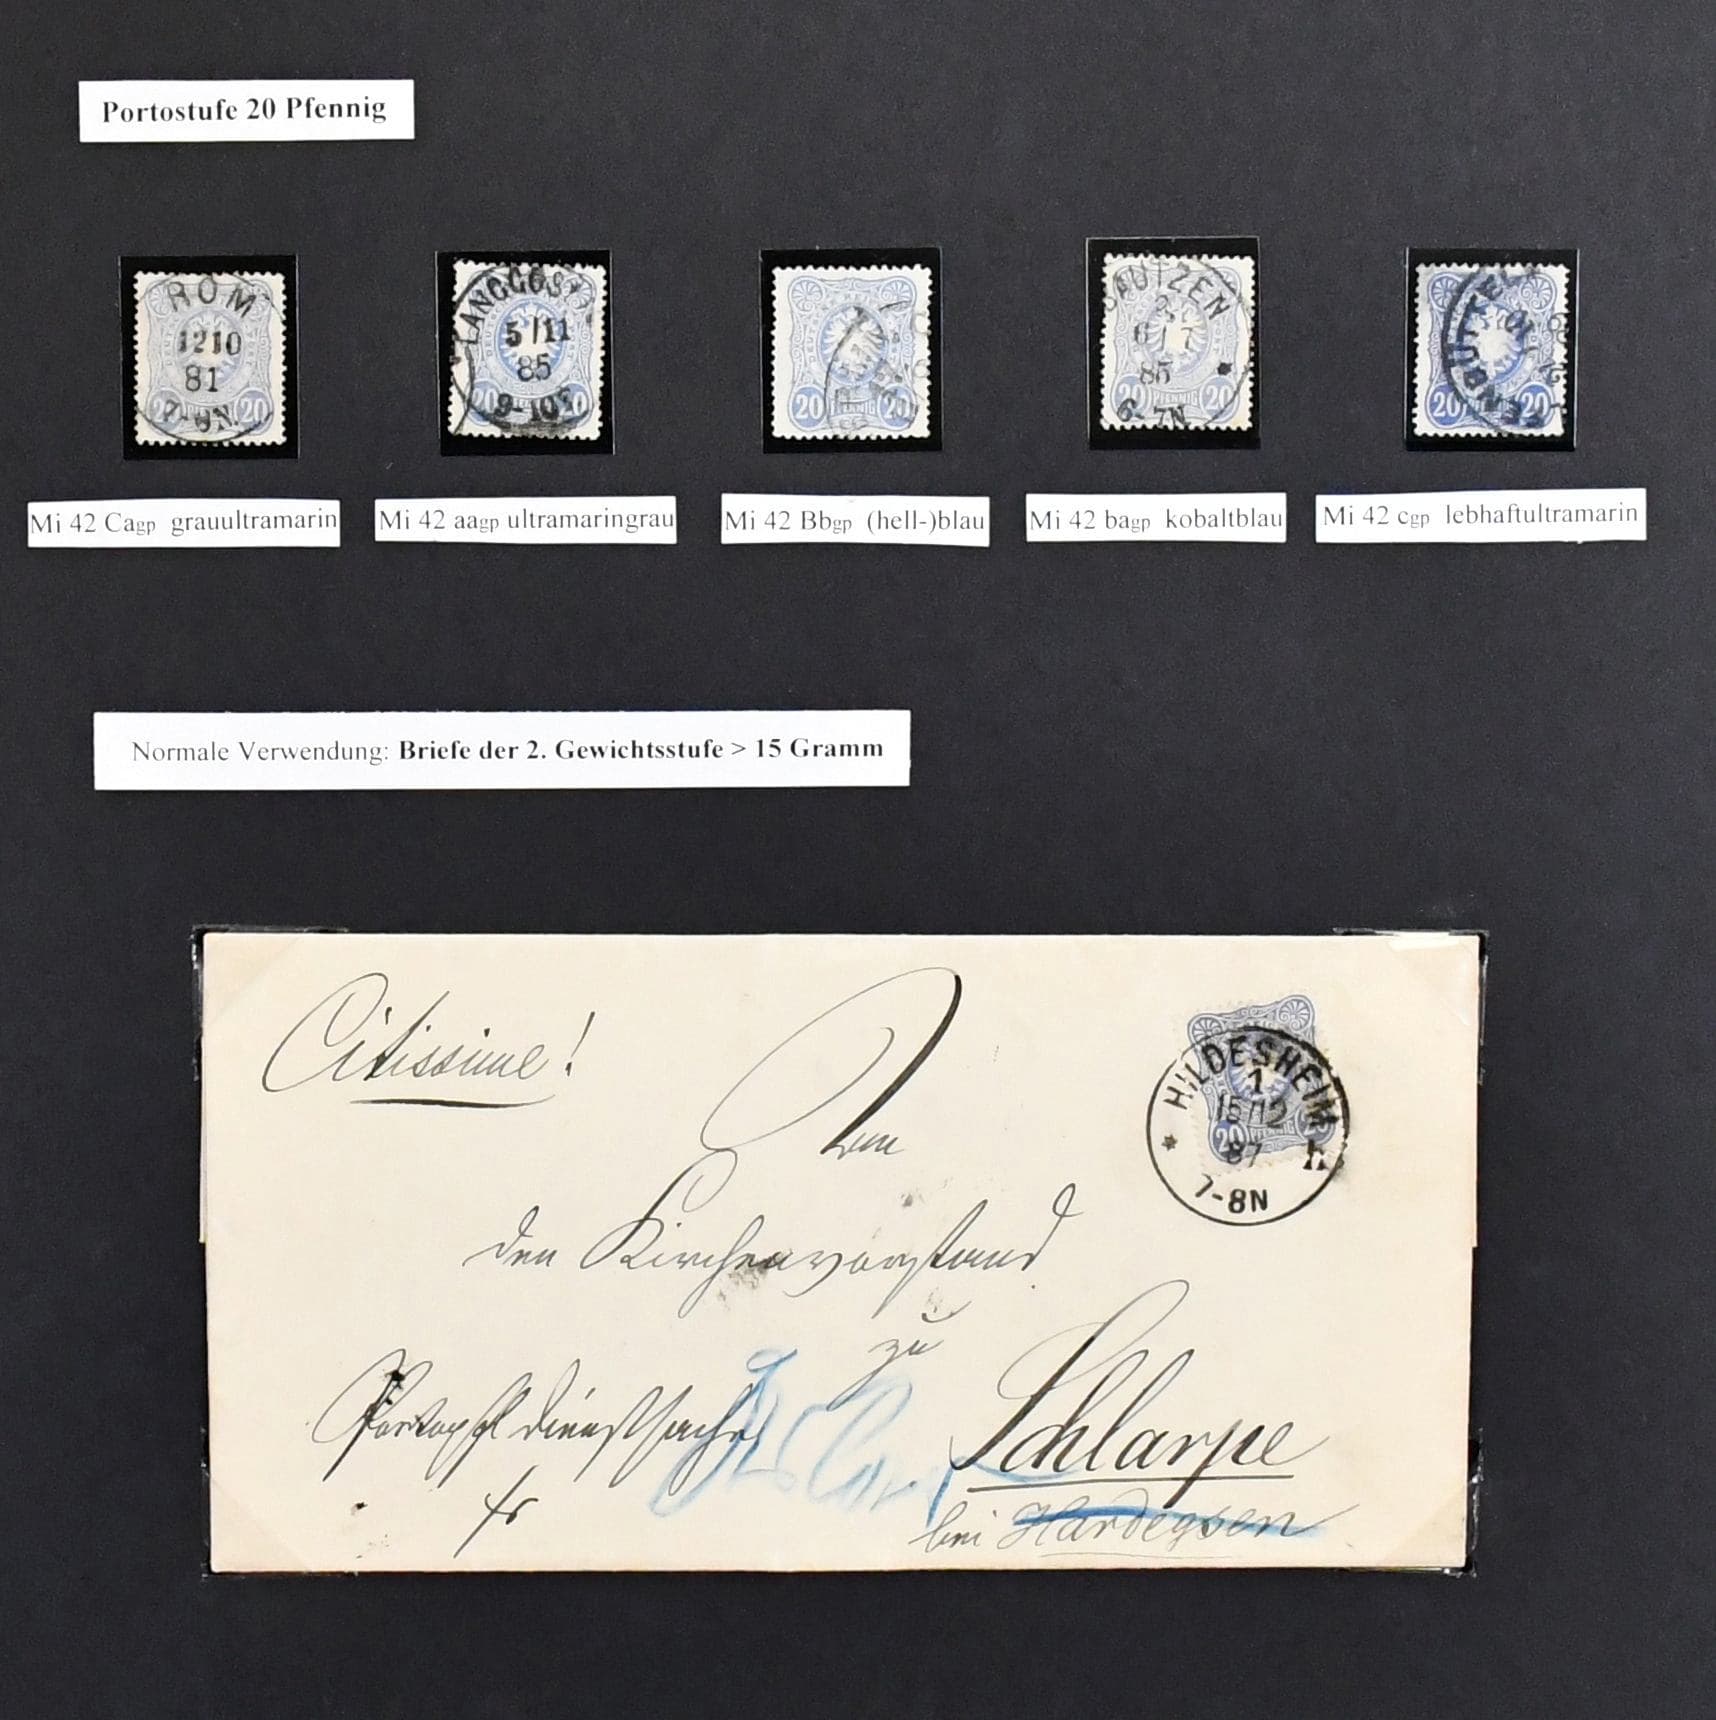 Portostufe 20 Pfennig
ROM
12 10
81
7-8N.
20 20
LANGGÖNS
5/11
85
9-10V
20 20
20 PFENNIG 20
BAUTZEN
6 7
85
6-7N
20 PFENNIG 20
WOLFENBÜTTEL
20 20
Mi 42 Cagp grauultramarin
Mi 42 aagp ultramaringrau
Mi 42 Bbgp (hell-)blau
Mi 42 bagp kobaltblau
Mi 42 cgp lebhaftultramarin
Normale Verwendung: Briefe der 2. Gewichtsstufe > 15 Gramm
Citissime!
An
den Kirchenvorstand
zu
Schlarpe
bei Hardegsen
Portopfl Dienstsache
HILDESHEIM
1
15/12
87
7-8N
20 PFENNIG